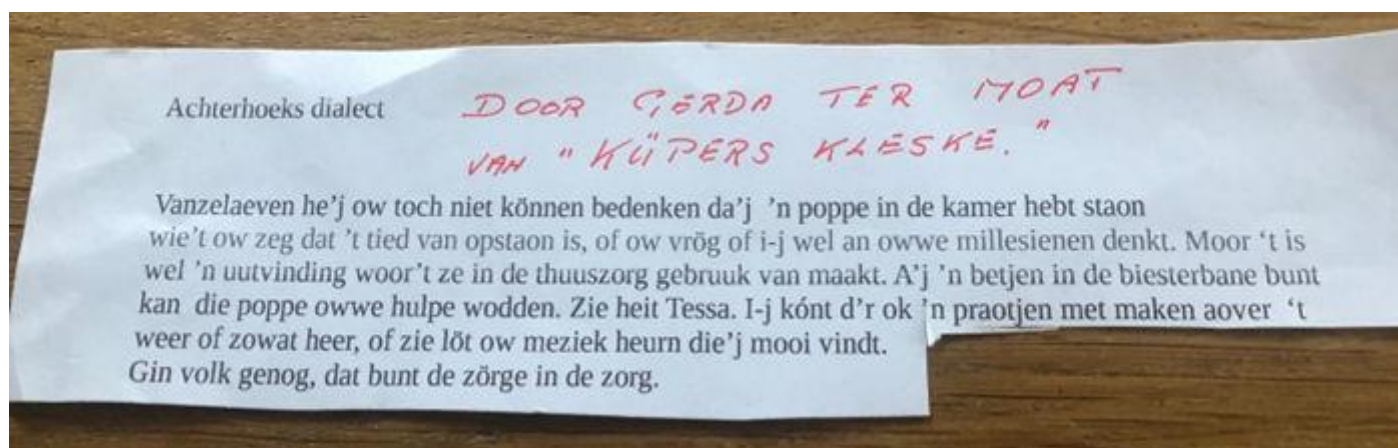 Achterhoeks dialect
DOOR GERDA TER MOAT
VAN "KÜPERS KLESKE."
Vanzelaeven he'j ow toch niet können bedenken da'j 'n poppe in de kamer hebt staon
wie't ow zeg dat 't tied van opstaon is, of ow vrög of i-j wel an owwe millesienen denkt. Moor 't is
wel 'n uutvinding woor't ze in de thuuszorg gebruuk van maakt. A'j 'n betjen in de biesterbane bunt
kan die poppe owwe hulpe wodden. Zie heit Tessa. I-j kónt d'r ok 'n praotjen met maken aover 't
weer of zowat heer, of zie löt ow meziek heurn die'j mooi vindt.
Gin volk genog, dat bunt de zörge in de zorg.